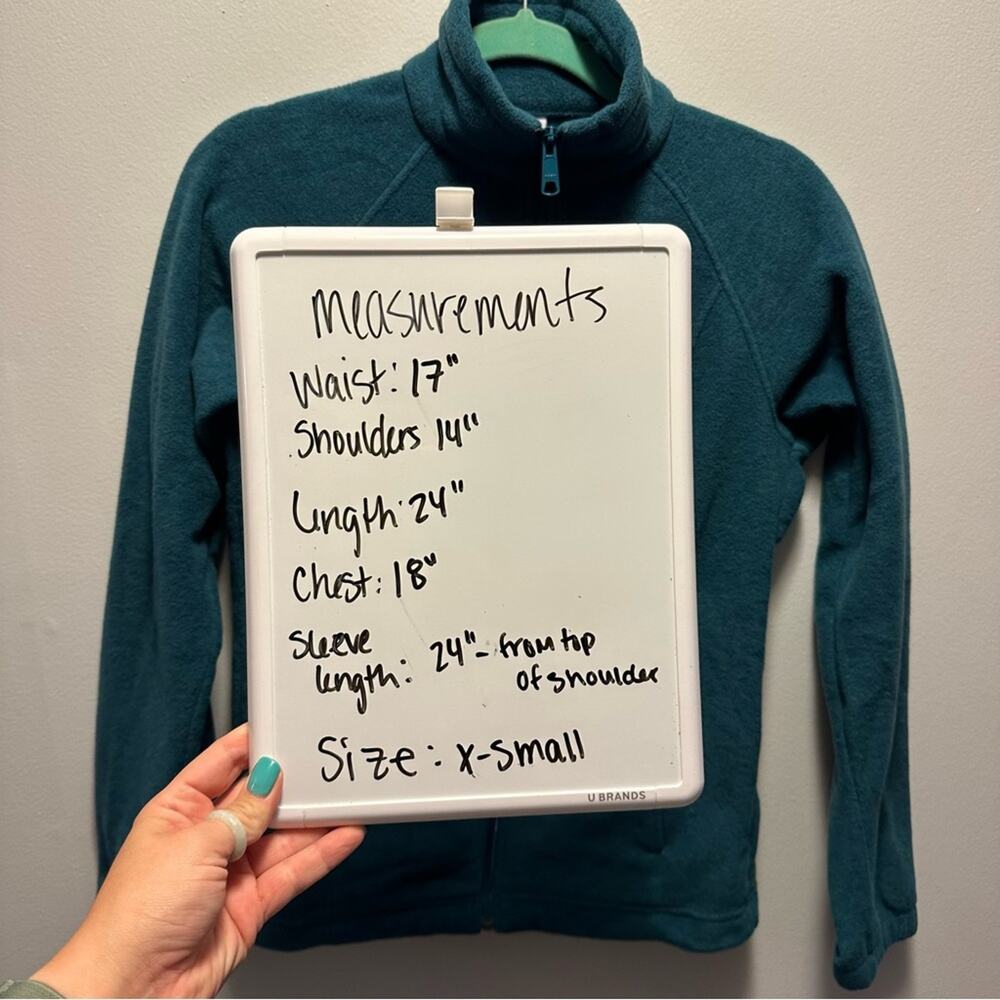 measurements
Waist: 17"
Shoulders 14"
Length: 24"
Chest: 18"
Sleeve
length: 24" - from top
of shoulder
Size: X-Small
U BRANDS